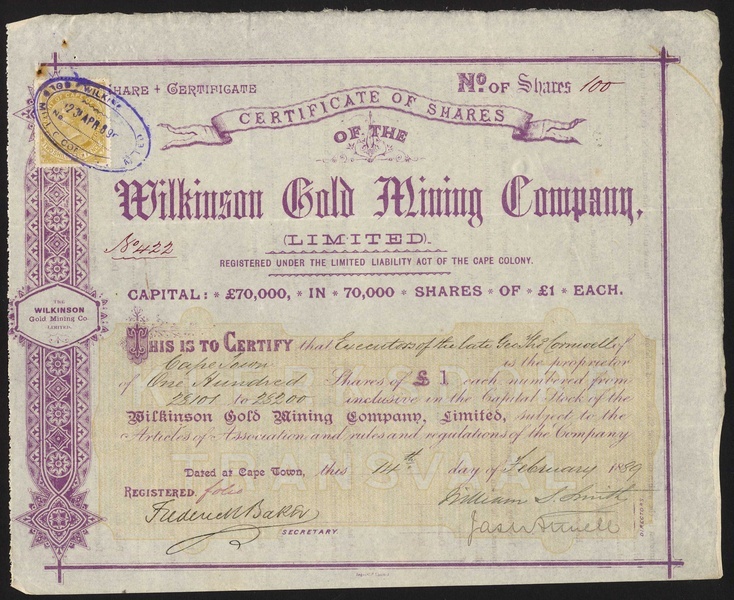 SHARE + CERTIFICATE
No. OF Shares 100
CERTIFICATE OF SHARES
OF THE
Wilkinson Gold Mining Company,
(LIMITED).
No 422
REGISTERED UNDER THE LIMITED LIABILITY ACT OF THE CAPE COLONY.
CAPITAL: * £70,000, * IN * 70,000 * SHARES * OF * £1 * EACH.
THE
WILKINSON
Gold Mining Co.
LIMITED.
THIS IS TO CERTIFY that Executors of the late Geo Thos Cornwall of
Cape Town is the proprietor
of One Hundred Shares of £1 each numbered from
28101 to 28200 inclusive in the Capital Stock of the
Wilkinson Gold Mining Company, Limited, subject to the
Articles of Association and rules and regulations of the Company
TRANSVAAL
DATED at CAPE TOWN, this 14th day of February 1889
REGISTERED. folio
William S. Smith
Frederick Baker
SECRETARY.
DIRECTORS.